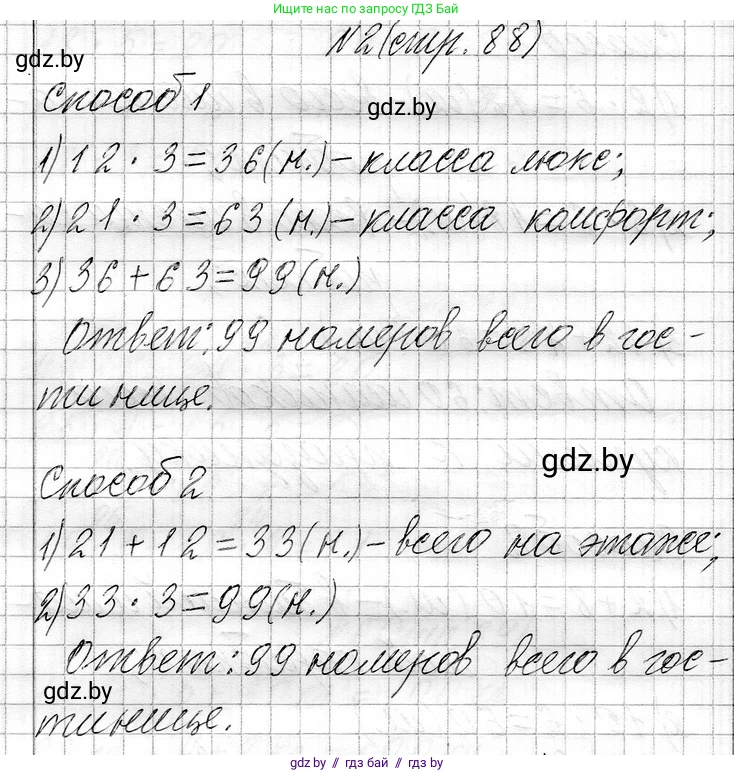 Ищите нас по запросу ГДЗ Бай
N2 (стр. 88)
gdz.by
Способ 1
gdz.by
1) 12 · 3 = 36 (н.) – класса люкс;
2) 21 · 3 = 63 (н.) – класса комфорт;
3) 36 + 63 = 99 (н.)
Ответ: 99 номеров всего в гос-
тинице.
gdz.by
Способ 2
1) 21 + 12 = 33 (н.) – всего на этаже;
2) 33 · 3 = 99 (н.)
Ответ: 99 номеров всего в гос-
gdz.by
тинице.
gdz by // гдз бай // gdz by